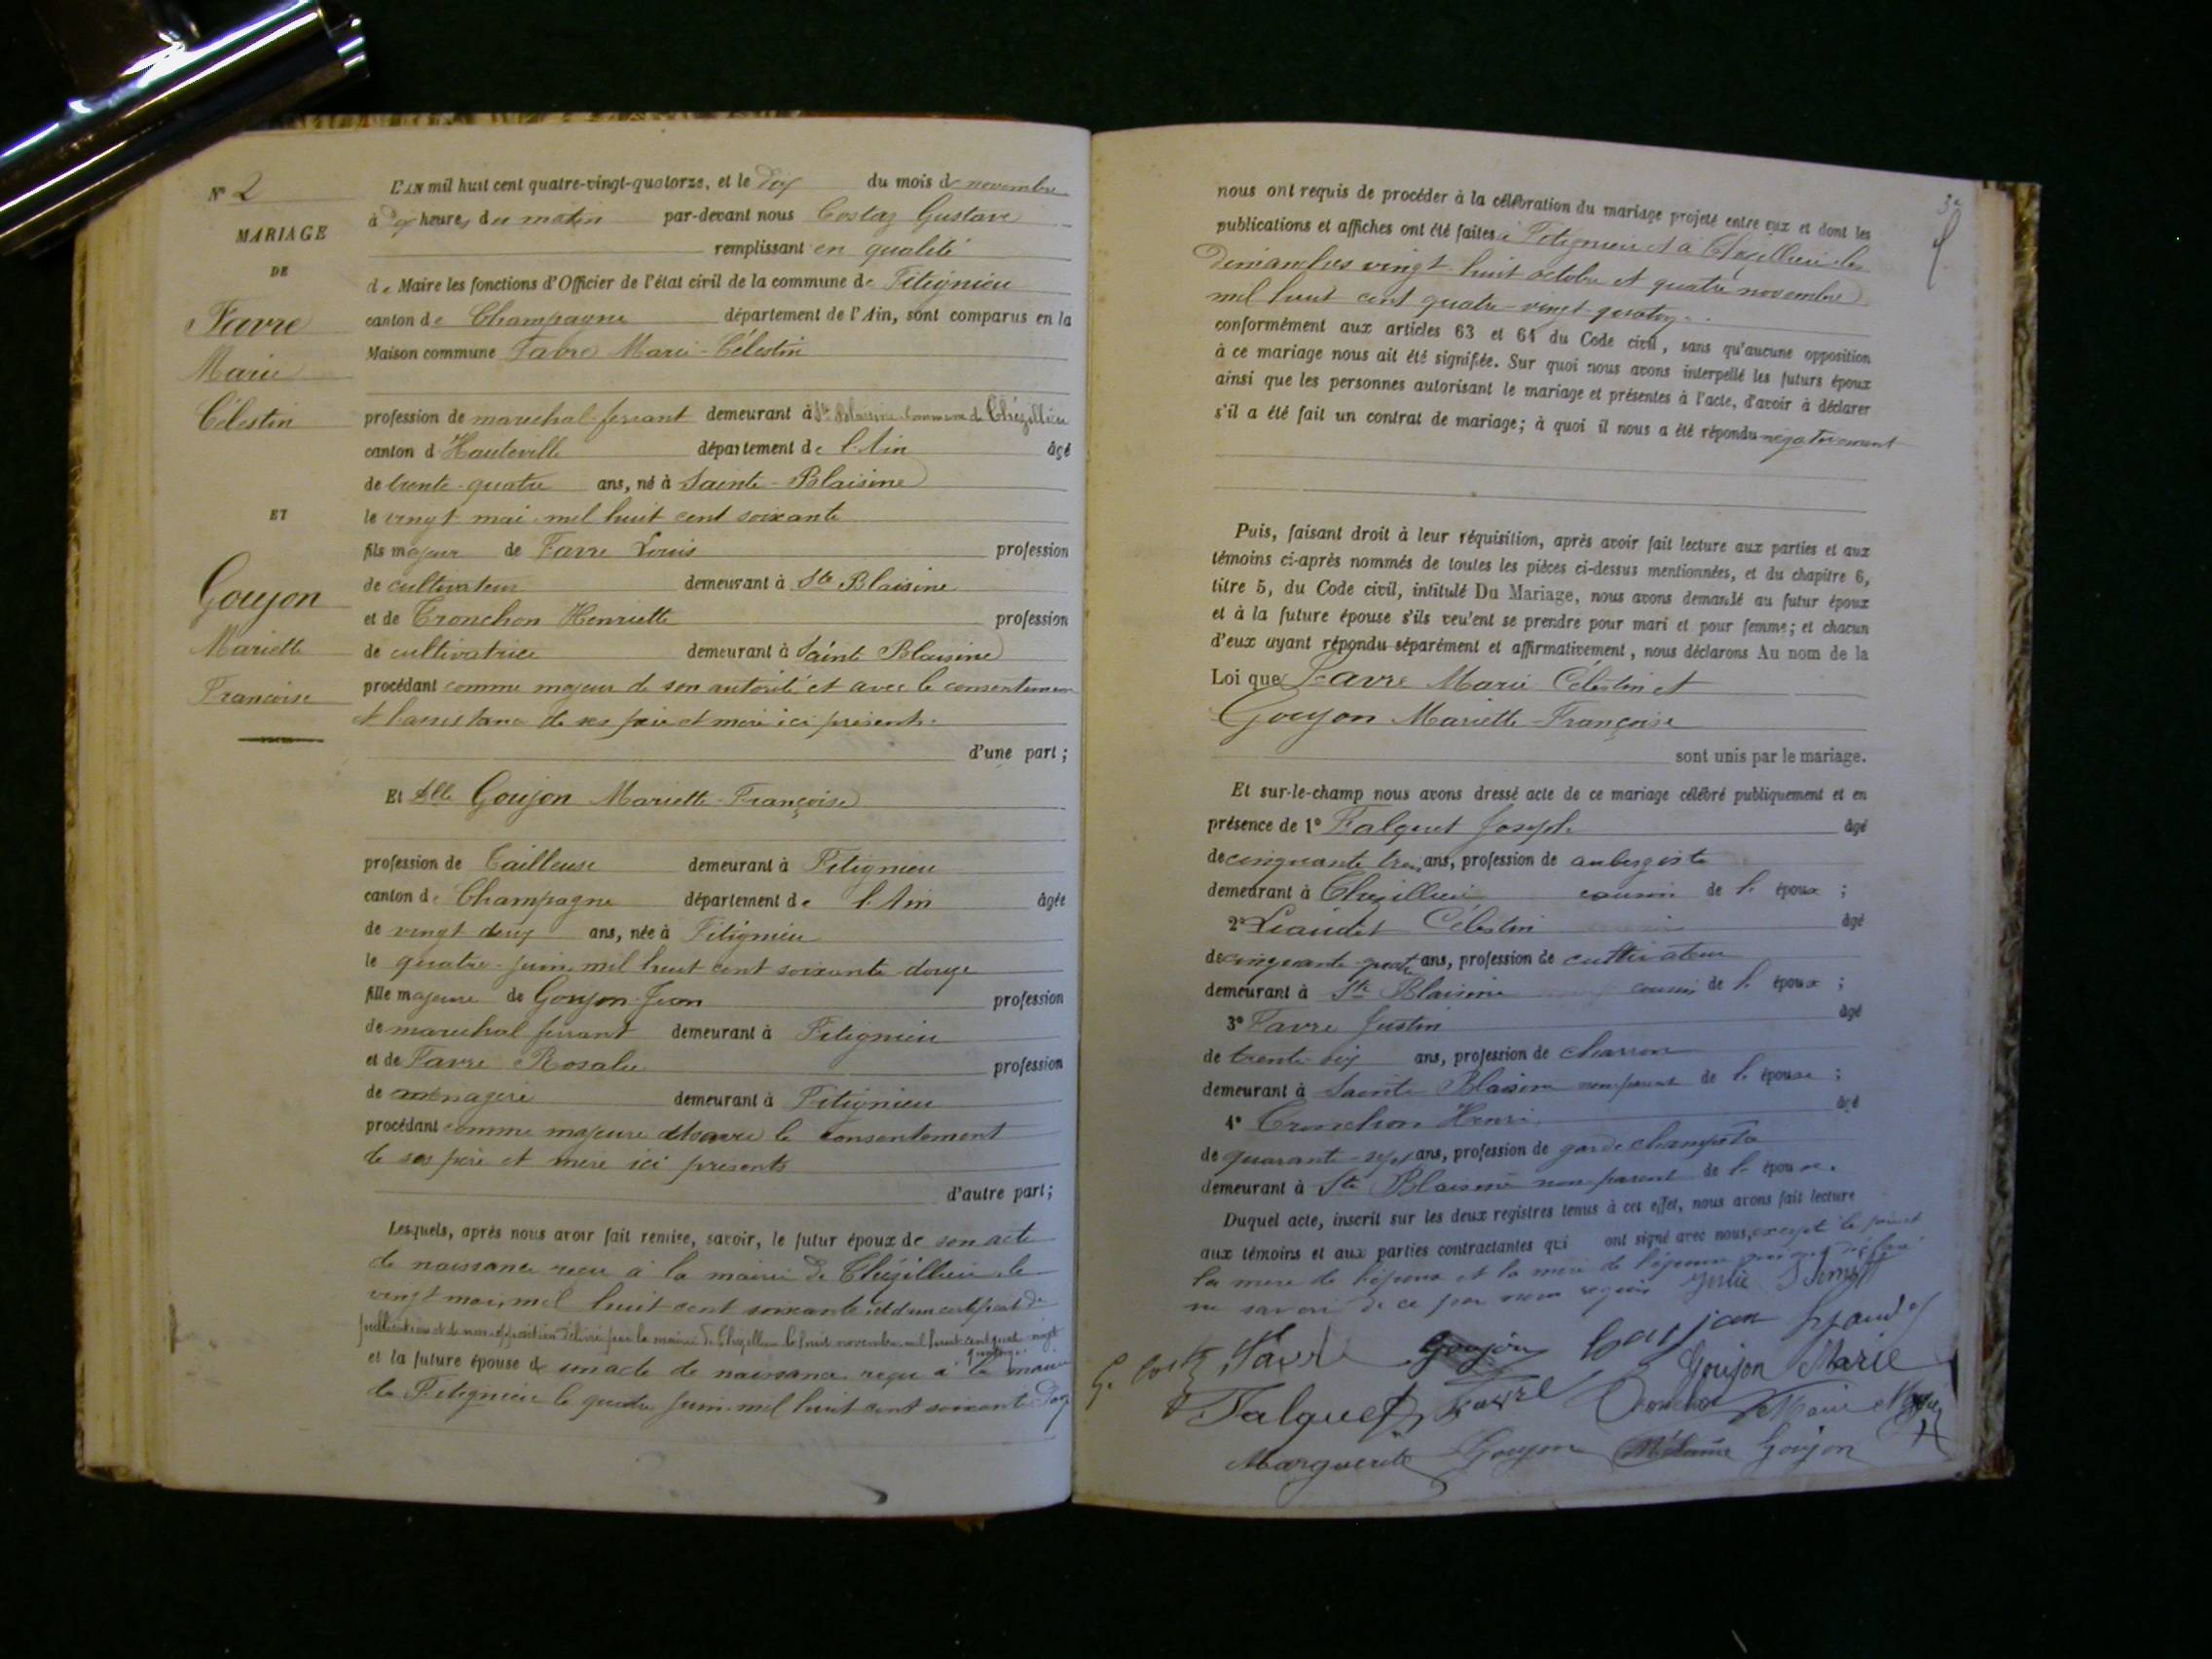 N° 2
MARIAGE
DE
Favre
Marie
Célestin
ET
Goujon
Mariette
Françoise
L'AN mil huit cent quatre-vingt-quatorze, et le dix du mois de novembre
à dix heures du matin par-devant nous Costaz Gustave
remplissant en qualité
de Maire les fonctions d'Officier de l'état civil de la commune de Fitignieu
canton de Champagne département de l'Ain, sont comparus en la
Maison commune Favre Marie-Célestin
profession de maréchal-ferrant demeurant à Ste Blaisine commune de Chézillieu
canton d'Hauteville département de l'Ain âgé
de trente-quatre ans, né à Sainte-Blaisine
le vingt mai mil huit cent soixante
fils majeur de Favre Louis profession
de cultivateur demeurant à Ste Blaisine
et de Tronchon Henriette profession
de cultivatrice demeurant à Sainte Blaisine
procédant comme majeur de son autorité et avec le consentement
et l'assistance de ses père et mère ici présents.
d'une part;
Et Dlle Goujon Mariette-Françoise
profession de Tailleuse demeurant à Fitignieu
canton de Champagne département de l'Ain âgée
de vingt deux ans, née à Fitignieu
le quatre juin mil huit cent soixante-douze
fille majeure de Goujon Jean profession
de maréchal ferrant demeurant à Fitignieu
et de Favre Rosalie profession
de ménagère demeurant à Fitignieu
procédant comme majeure et avec le consentement
de ses père et mère ici présents
d'autre part;
Lesquels, après nous avoir fait remise, savoir, le futur époux de son acte
de naissance reçu à la mairie de Chézillieu le
vingt mai, mil huit cent soixante et d'un certificat de
publication et de non opposition délivré par le maire de Chézillieu le huit novembre mil huit cent quatre-vingt
quatorze
et la future épouse de son acte de naissance reçu à la mairie
de Fitignieu le quatre juin mil huit cent soixante-douze
nous ont requis de procéder à la célébration du mariage projeté entre eux et dont les
publications et affiches ont été faites à Fitignieu et à Chézillieu les
Dimanches vingt-huit octobre et quatre novembre
mil huit cent quatre-vingt-quatorze.
conformément aux articles 63 et 64 du Code civil, sans qu'aucune opposition
à ce mariage nous ait été signifiée. Sur quoi nous avons interpellé les futurs époux
ainsi que les personnes autorisant le mariage et présentes à l'acte, d'avoir à déclarer
s'il a été fait un contrat de mariage; à quoi il nous a été répondu négativement
Puis, faisant droit à leur réquisition, après avoir fait lecture aux parties et aux
témoins ci-après nommés de toutes les pièces ci-dessus mentionnées, et du chapitre 6,
titre 5, du Code civil, intitulé Du Mariage, nous avons demandé au futur époux
et à la future épouse s'ils veulent se prendre pour mari et pour femme; et chacun
d'eux ayant répondu séparément et affirmativement, nous déclarons Au nom de la
Loi que Favre Marie Célestin et
Goujon Mariette-Françoise
sont unis par le mariage.
Et sur-le-champ nous avons dressé acte de ce mariage célébré publiquement et en
présence de 1° Falquet Joseph âgé
de cinquante trois ans, profession de aubergiste
demeurant à Chézillieu cousin de l'époux;
2° Liaudet Célestin âgé
de cinquante-quatre ans, profession de cultivateur
demeurant à Ste Blaisine cousin de l'époux;
3° Favre Justin âgé
de trente-six ans, profession de charron
demeurant à Sainte Blaisine non parent de l'épouse;
4° Tronchon Henri âgé
de quarante-sept ans, profession de garde champêtre
demeurant à Ste Blaisine non parent de l'épouse.
Duquel acte, inscrit sur les deux registres tenus à cet effet, nous avons fait lecture
aux témoins et aux parties contractantes qui ont signé avec nous, excepté le
la mère de l'époux et la mère de l'épouse qui ont déclaré
ne savoir de ce par nous requis
Favre Goujon
Goujon Marie
Falquet Favre Tronchon
Marguerite Goujon Mélanie Goujon